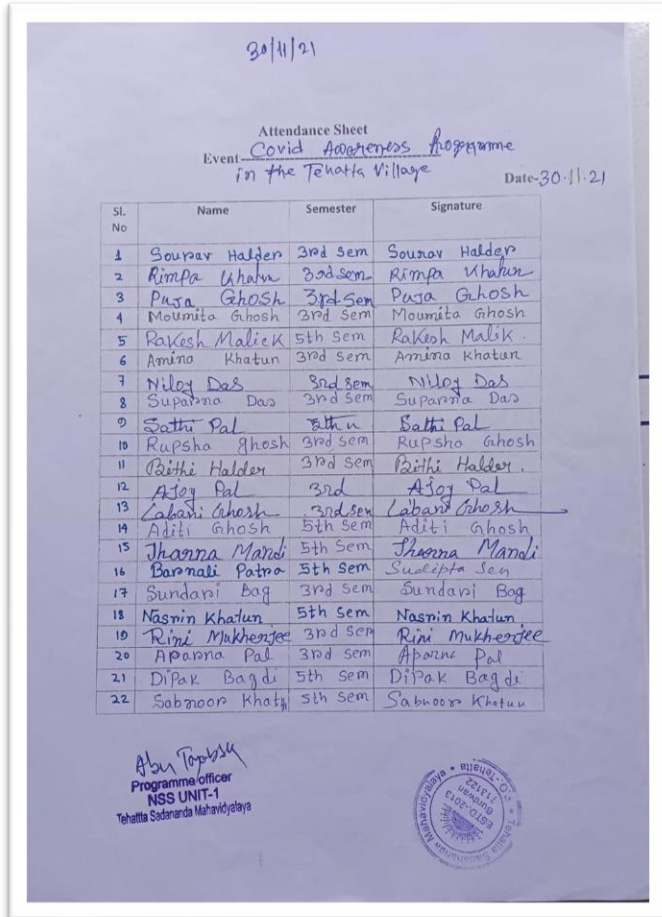 30/11/21
Attendance Sheet
Event- Covid Awareness Programme
in the Tehatta Village
Date-30.11.21
Sl. No Name Semester Signature
1 Sourav Halder 3rd Sem Sourav Halder
2 Rimpa Khatun 3rd Sem Rimpa Khatun
3 Puja Ghosh 3rd Sem Puja Ghosh
4 Moumita Ghosh 3rd Sem Moumita Ghosh
5 Rakesh Malick 5th Sem Rakesh Malik.
6 Amina Khatun 3rd Sem Amina Khatun
7 Niloy Das 3rd Sem Niloy Das
8 Suparna Das 3rd Sem Suparna Das
9 Sathi Pal Sathi Pal
10 Rupsha Ghosh 3rd Sem Rupsha Ghosh
11 Bithi Halder 3rd Sem Bithi Halder.
12 Ajoy Pal 3rd Ajoy Pal
13 Labani Ghosh 3rd Sem Labani Ghosh
14 Aditi Ghosh 5th Sem Aditi Ghosh
15 Jharna Mandi 5th Sem Jharna Mandi
16 Barnali Patra 5th Sem Sudipta Sen
17 Sundari Bag 3rd Sem Sundari Bag
18 Nasrin Khatun 5th Sem Nasrin Khatun
19 Rini Mukherjee 3rd Sem Rini Mukherjee
20 Aparna Pal 3rd Sem Aparna Pal
21 Dipak Bagdi 5th Sem Dipak Bagdi
22 Sabnoor Khatun 5th Sem Sabnoor Khatun
Abu
Programme officer
NSS UNIT-1
Tehattta Sadananda Mahavidyalaya
Tehatta Sadananda Mahavidyalaya * P.O.-Tehatta *
ESTD-2013
Burdwan
713122